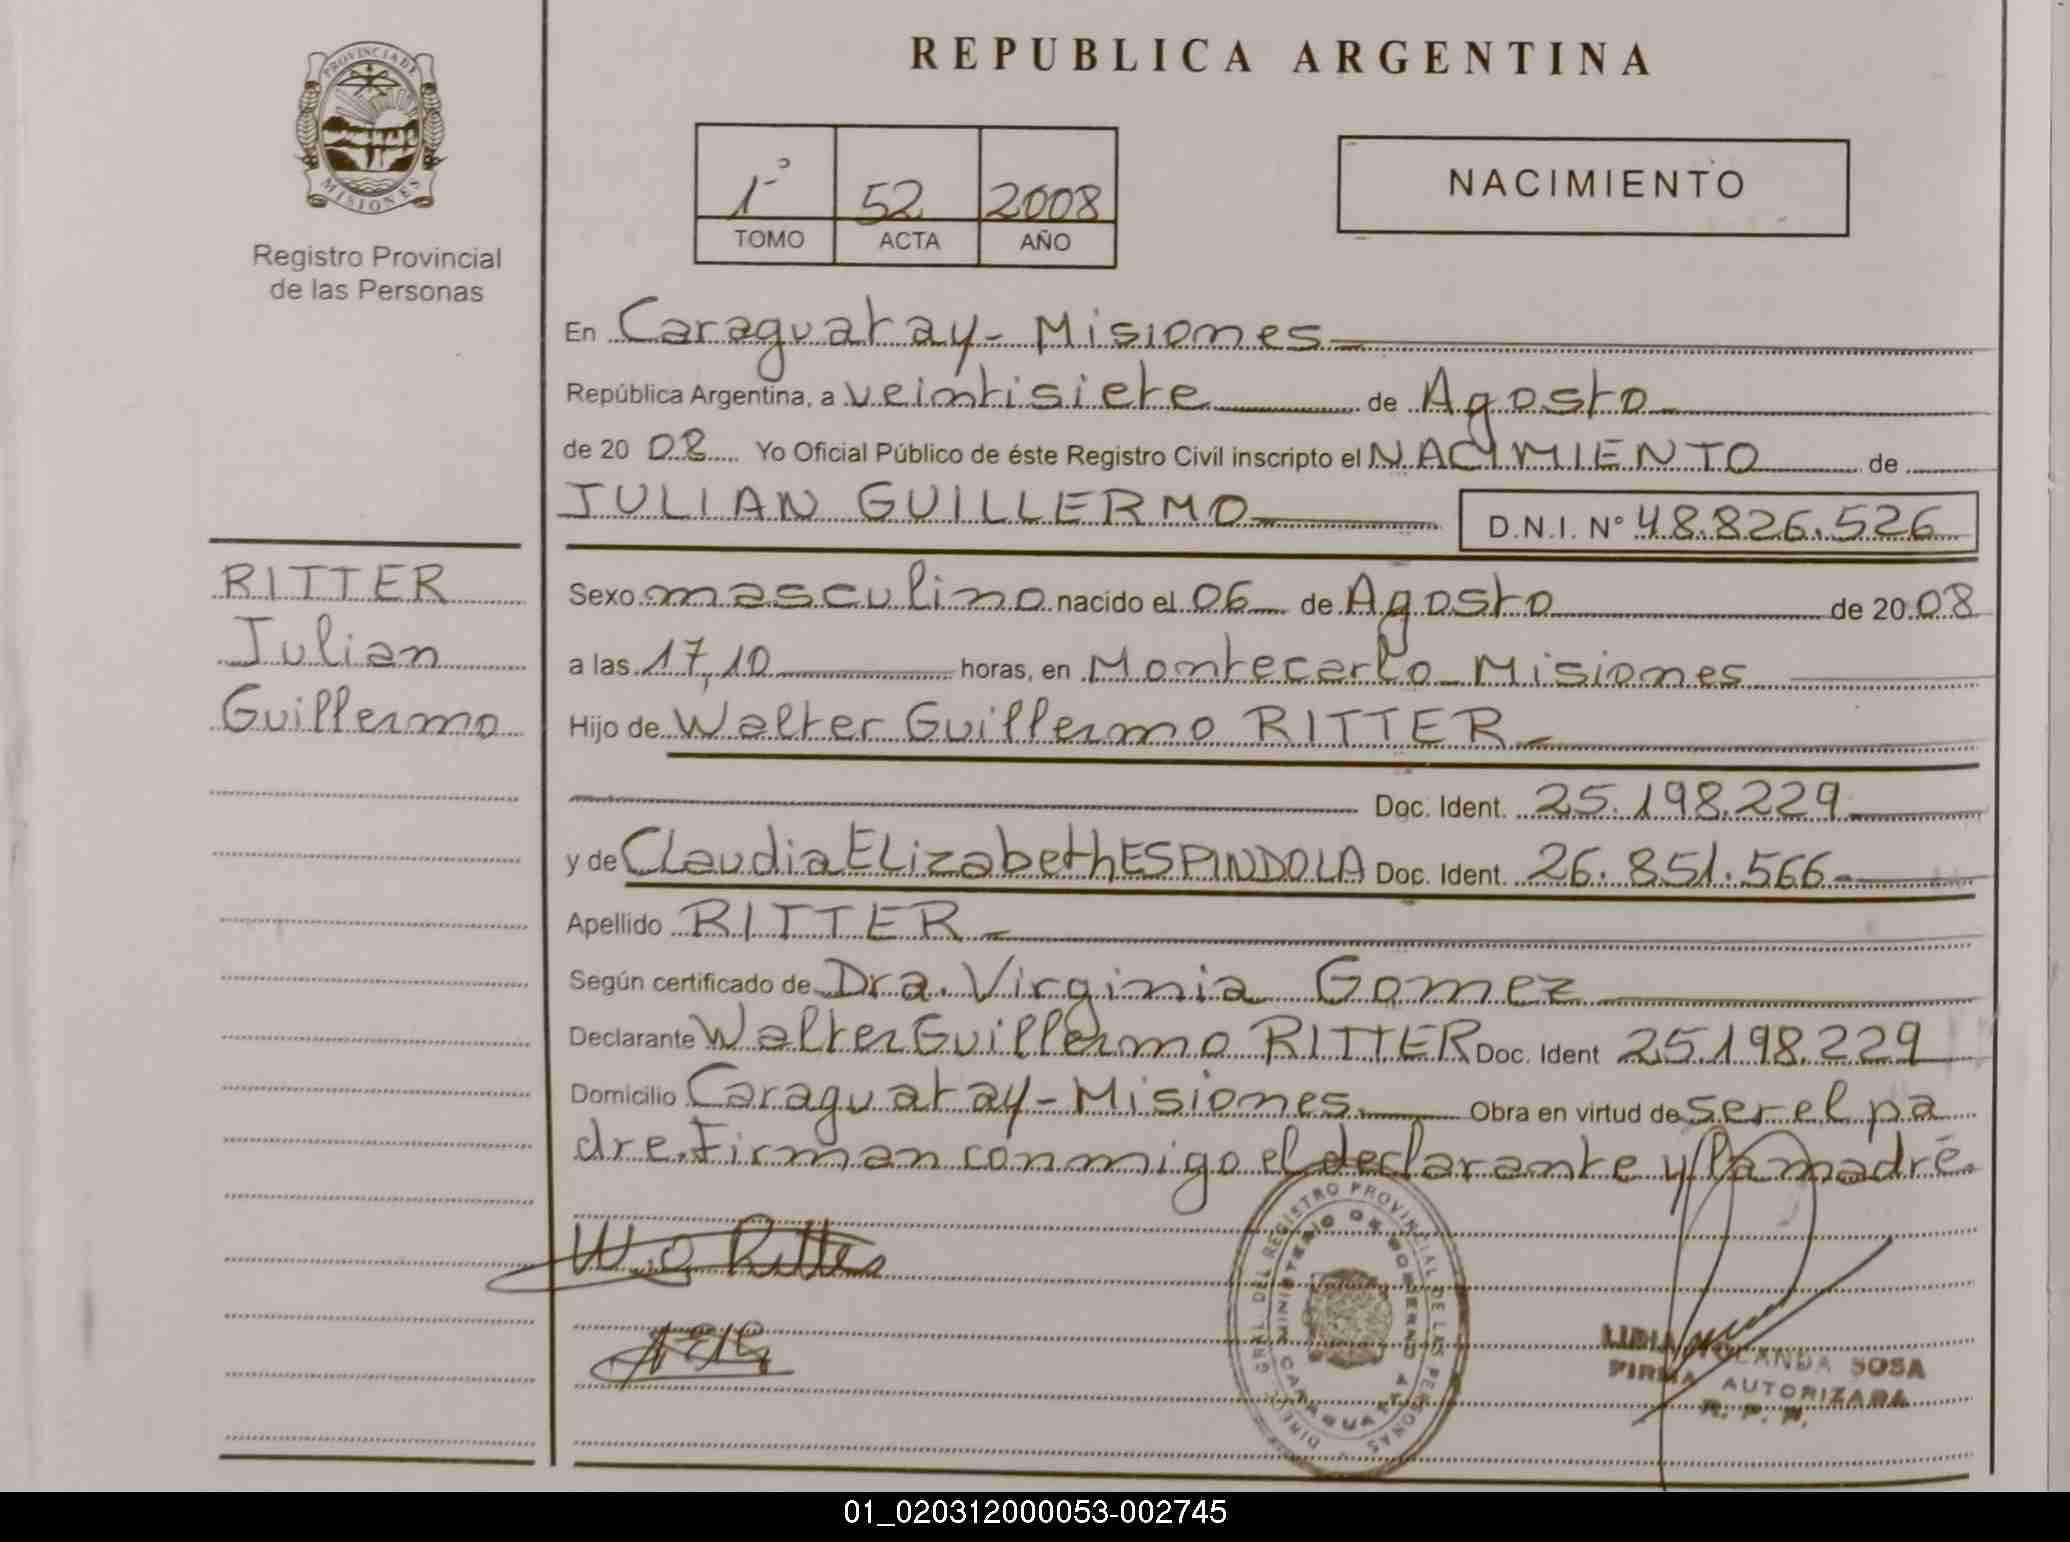 REPUBLICA ARGENTINA
PROVINCIA DE
MISIONES
Registro Provincial
de las Personas
1º 52 2008
TOMO ACTA AÑO
NACIMIENTO
En Caraguatay - Misiones
República Argentina, a veintisiete de Agosto
de 20 08 Yo Oficial Público de éste Registro Civil inscripto el NACIMIENTO de
JULIAN GUILLERMO D.N.I. Nº 48.826.526
RITTER
Julian
Guillermo
Sexo masculino nacido el 06 de Agosto de 20 08
a las 17,10 horas, en Montecarlo - Misiones
Hijo de Walter Guillermo RITTER
Doc. Ident. 25.198.229
y de Claudia Elizabeth ESPINDOLA Doc. Ident. 26.851.566
Apellido RITTER
Según certificado de Dra. Virginia Gomez
Declarante Walter Guillermo RITTER Doc. Ident 25.198.229
Domicilio Caraguatay - Misiones Obra en virtud de ser el pa
dre. Firman conmigo el declarante y la madre.
W. G Ritter
DIREC. GRAL DEL REGISTRO PROVINCIAL DE LAS PERSONAS
MINISTERIO DE GOBIERNO
CARAGUATAY
LIDIA YOLANDA SOSA
FIRMA AUTORIZADA
R. P. P.
01_020312000053-002745